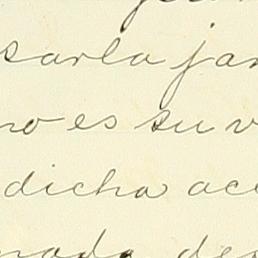 sarla jam
no es su v
dicha ac
nada de